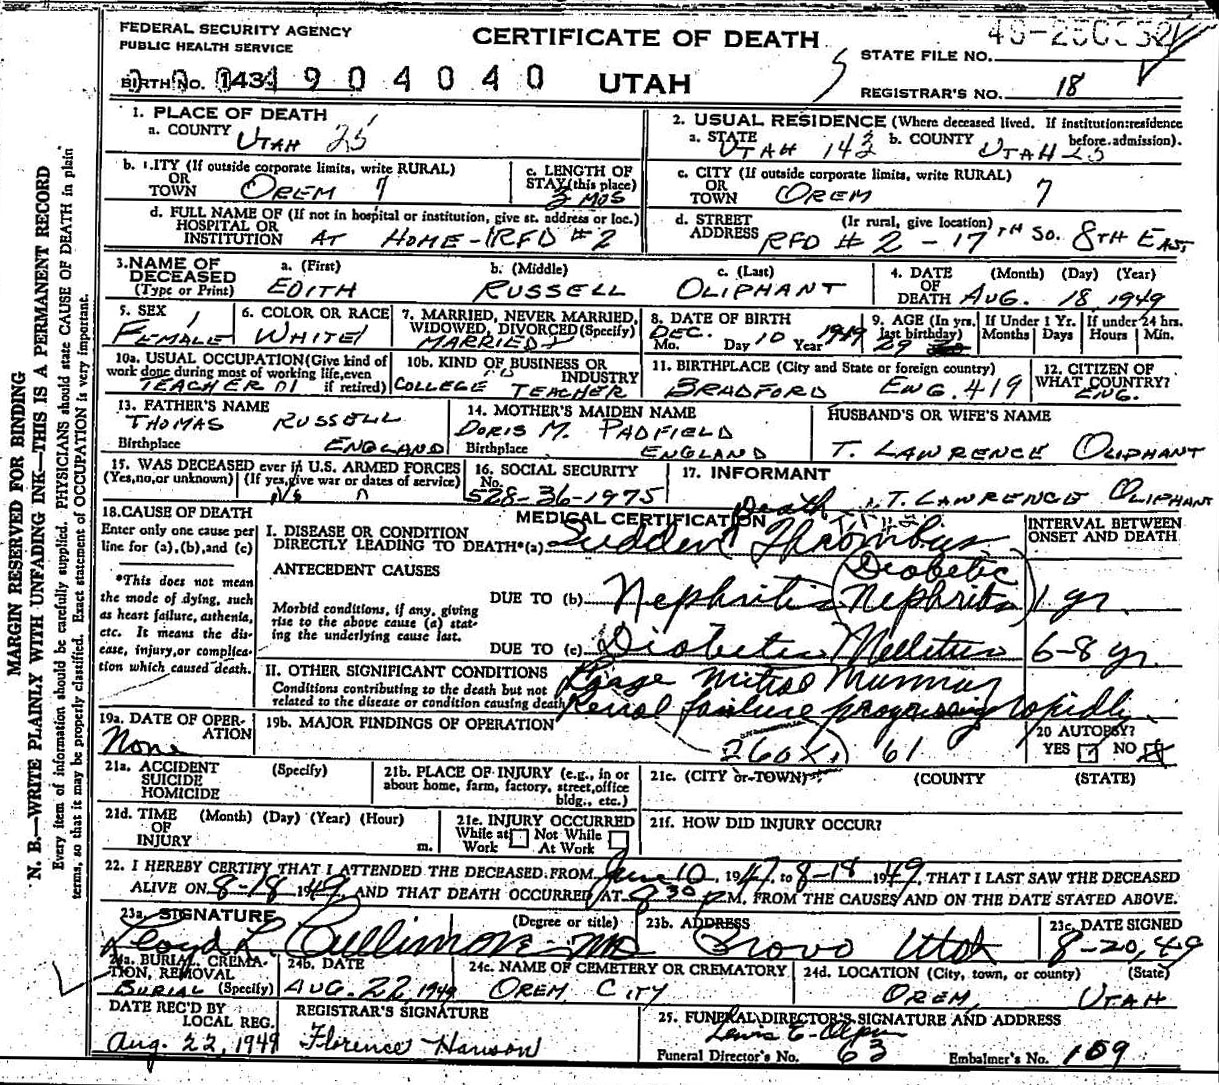 FEDERAL SECURITY AGENCY
PUBLIC HEALTH SERVICE
CERTIFICATE OF DEATH
STATE FILE NO.
BIRTH NO. 143 1904040
UTAH
REGISTRAR'S NO. 18
1. PLACE OF DEATH
a. COUNTY UTAH 25
2. USUAL RESIDENCE (Where deceased lived. If institution: residence before admission).
a. STATE UTAH 143 b. COUNTY UTAH 25
b. CITY (If outside corporate limits, write RURAL) OR TOWN OREM 7
c. LENGTH OF STAY (this place) 3 MOS
c. CITY (If outside corporate limits, write RURAL) OR TOWN OREM 7
d. FULL NAME OF (If not in hospital or institution, give st. address or loc.) HOSPITAL OR INSTITUTION AT HOME-RFD #2
d. STREET ADDRESS (If rural, give location) RFD # 2 - 17TH So. 8TH EAST
3. NAME OF DECEASED (Type or Print)
a. (First) EDITH
b. (Middle) RUSSELL
c. (Last) OLIPHANT
4. DATE OF DEATH (Month) (Day) (Year) AUG. 18 1949
5. SEX 1 FEMALE
6. COLOR OR RACE WHITE 1
7. MARRIED, NEVER MARRIED, WIDOWED, DIVORCED (Specify) MARRIED
8. DATE OF BIRTH DEC. Mo. Day 10 Year 1919
9. AGE (In yrs. last birthday) 29
If Under 1 Yr. Months Days
If under 24 hrs. Hours Min.
10a. USUAL OCCUPATION (Give kind of work done during most of working life, even if retired) TEACHER
10b. KIND OF BUSINESS OR INDUSTRY COLLEGE TEACHER
11. BIRTHPLACE (City and State or foreign country) BRADFORD ENG. 419
12. CITIZEN OF WHAT COUNTRY? ENG.
13. FATHER'S NAME THOMAS RUSSELL
Birthplace ENGLAND
14. MOTHER'S MAIDEN NAME DORIS M. PADFIELD
Birthplace ENGLAND
HUSBAND'S OR WIFE'S NAME
T. LAWRENCE OLIPHANT
15. WAS DECEASED ever in U.S. ARMED FORCES (Yes, no, or unknown) (If yes, give war or dates of service) No
16. SOCIAL SECURITY No. 528-36-1975
17. INFORMANT
T. LAWRENCE OLIPHANT
18. CAUSE OF DEATH
Enter only one cause per line for (a), (b), and (c)
*This does not mean the mode of dying, such as heart failure, asthenia, etc. It means the disease, injury, or complication which caused death.
MEDICAL CERTIFICATION
INTERVAL BETWEEN ONSET AND DEATH
I. DISEASE OR CONDITION DIRECTLY LEADING TO DEATH*(a) Sudden Death Thrombus
ANTECEDENT CAUSES
Morbid conditions, if any, giving rise to the above cause (a) stating the underlying cause last.
DUE TO (b) Nephritis (Diabetic Nephritis) 1 yr.
DUE TO (c) Diabetes Mellitus 6-8 yr.
II. OTHER SIGNIFICANT CONDITIONS
Conditions contributing to the death but not related to the disease or condition causing death
Large Mitral Murmur
Renal failure progressing rapidly
19a. DATE OF OPERATION None
19b. MAJOR FINDINGS OF OPERATION
260X 61
20 AUTOPSY? YES NO
21a. ACCIDENT SUICIDE HOMICIDE (Specify)
21b. PLACE OF INJURY (e.g., in or about home, farm, factory, street, office bldg., etc.)
21c. (CITY or TOWN) (COUNTY) (STATE)
21d. TIME OF INJURY (Month) (Day) (Year) (Hour) m.
21e. INJURY OCCURRED While at Work Not While At Work
21f. HOW DID INJURY OCCUR?
22. I HEREBY CERTIFY THAT I ATTENDED THE DECEASED FROM June 10, 1947, to 8-18 1949, THAT I LAST SAW THE DECEASED
ALIVE ON 8-18 1949 AND THAT DEATH OCCURRED AT 8:30 P M, FROM THE CAUSES AND ON THE DATE STATED ABOVE.
23a. SIGNATURE (Degree or title) Lloyd L. Cullimore MD
23b. ADDRESS Provo Utah
23c. DATE SIGNED 8-20, 49
24a. BURIAL, CREMATION, REMOVAL (Specify) BURIAL
24b. DATE AUG. 22, 1949
24c. NAME OF CEMETERY OR CREMATORY OREM CITY
24d. LOCATION (City, town, or county) (State) OREM, UTAH
DATE REC'D BY LOCAL REG. Aug. 22, 1949
REGISTRAR'S SIGNATURE Florence Hanson
25. FUNERAL DIRECTOR'S SIGNATURE AND ADDRESS
Funeral Director's No. 63 Embalmer's No. 159
MARGIN RESERVED FOR BINDING
N. B.—WRITE PLAINLY WITH UNFADING INK—THIS IS A PERMANENT RECORD
Every item of information should be carefully supplied. PHYSICIANS should state CAUSE OF DEATH in plain
terms, so that it may be properly classified. Exact statement of OCCUPATION is very important.